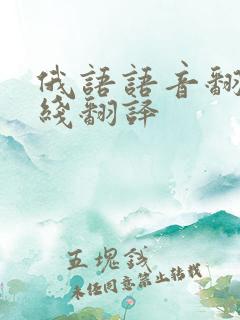 俄語語音翻
綫翻譯
五塊錢
未经同意禁止转载